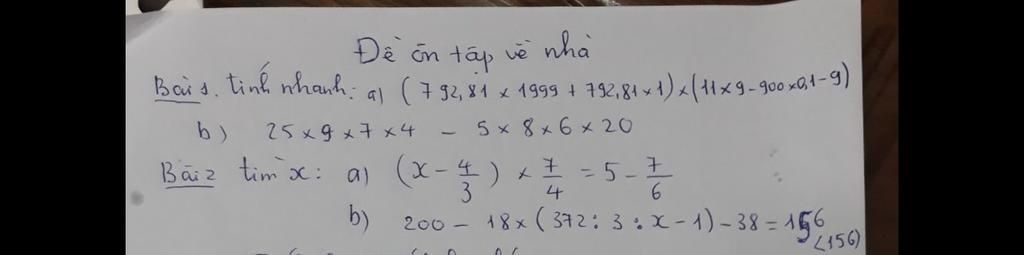 Đề ôn tập về nhà
Bài 1. tính nhanh: a) (792,81 × 1999 + 792,81 × 1) × (11 × 9 - 900 × 0,1 - 9)
b) 25 × 9 × 7 × 4 - 5 × 8 × 6 × 20
Bài 2 tìm x: a) (x - 4/3) × 7/4 = 5 - 7/6
b) 200 - 18 × (372 : 3 : x - 1) - 38 = 156
(156)